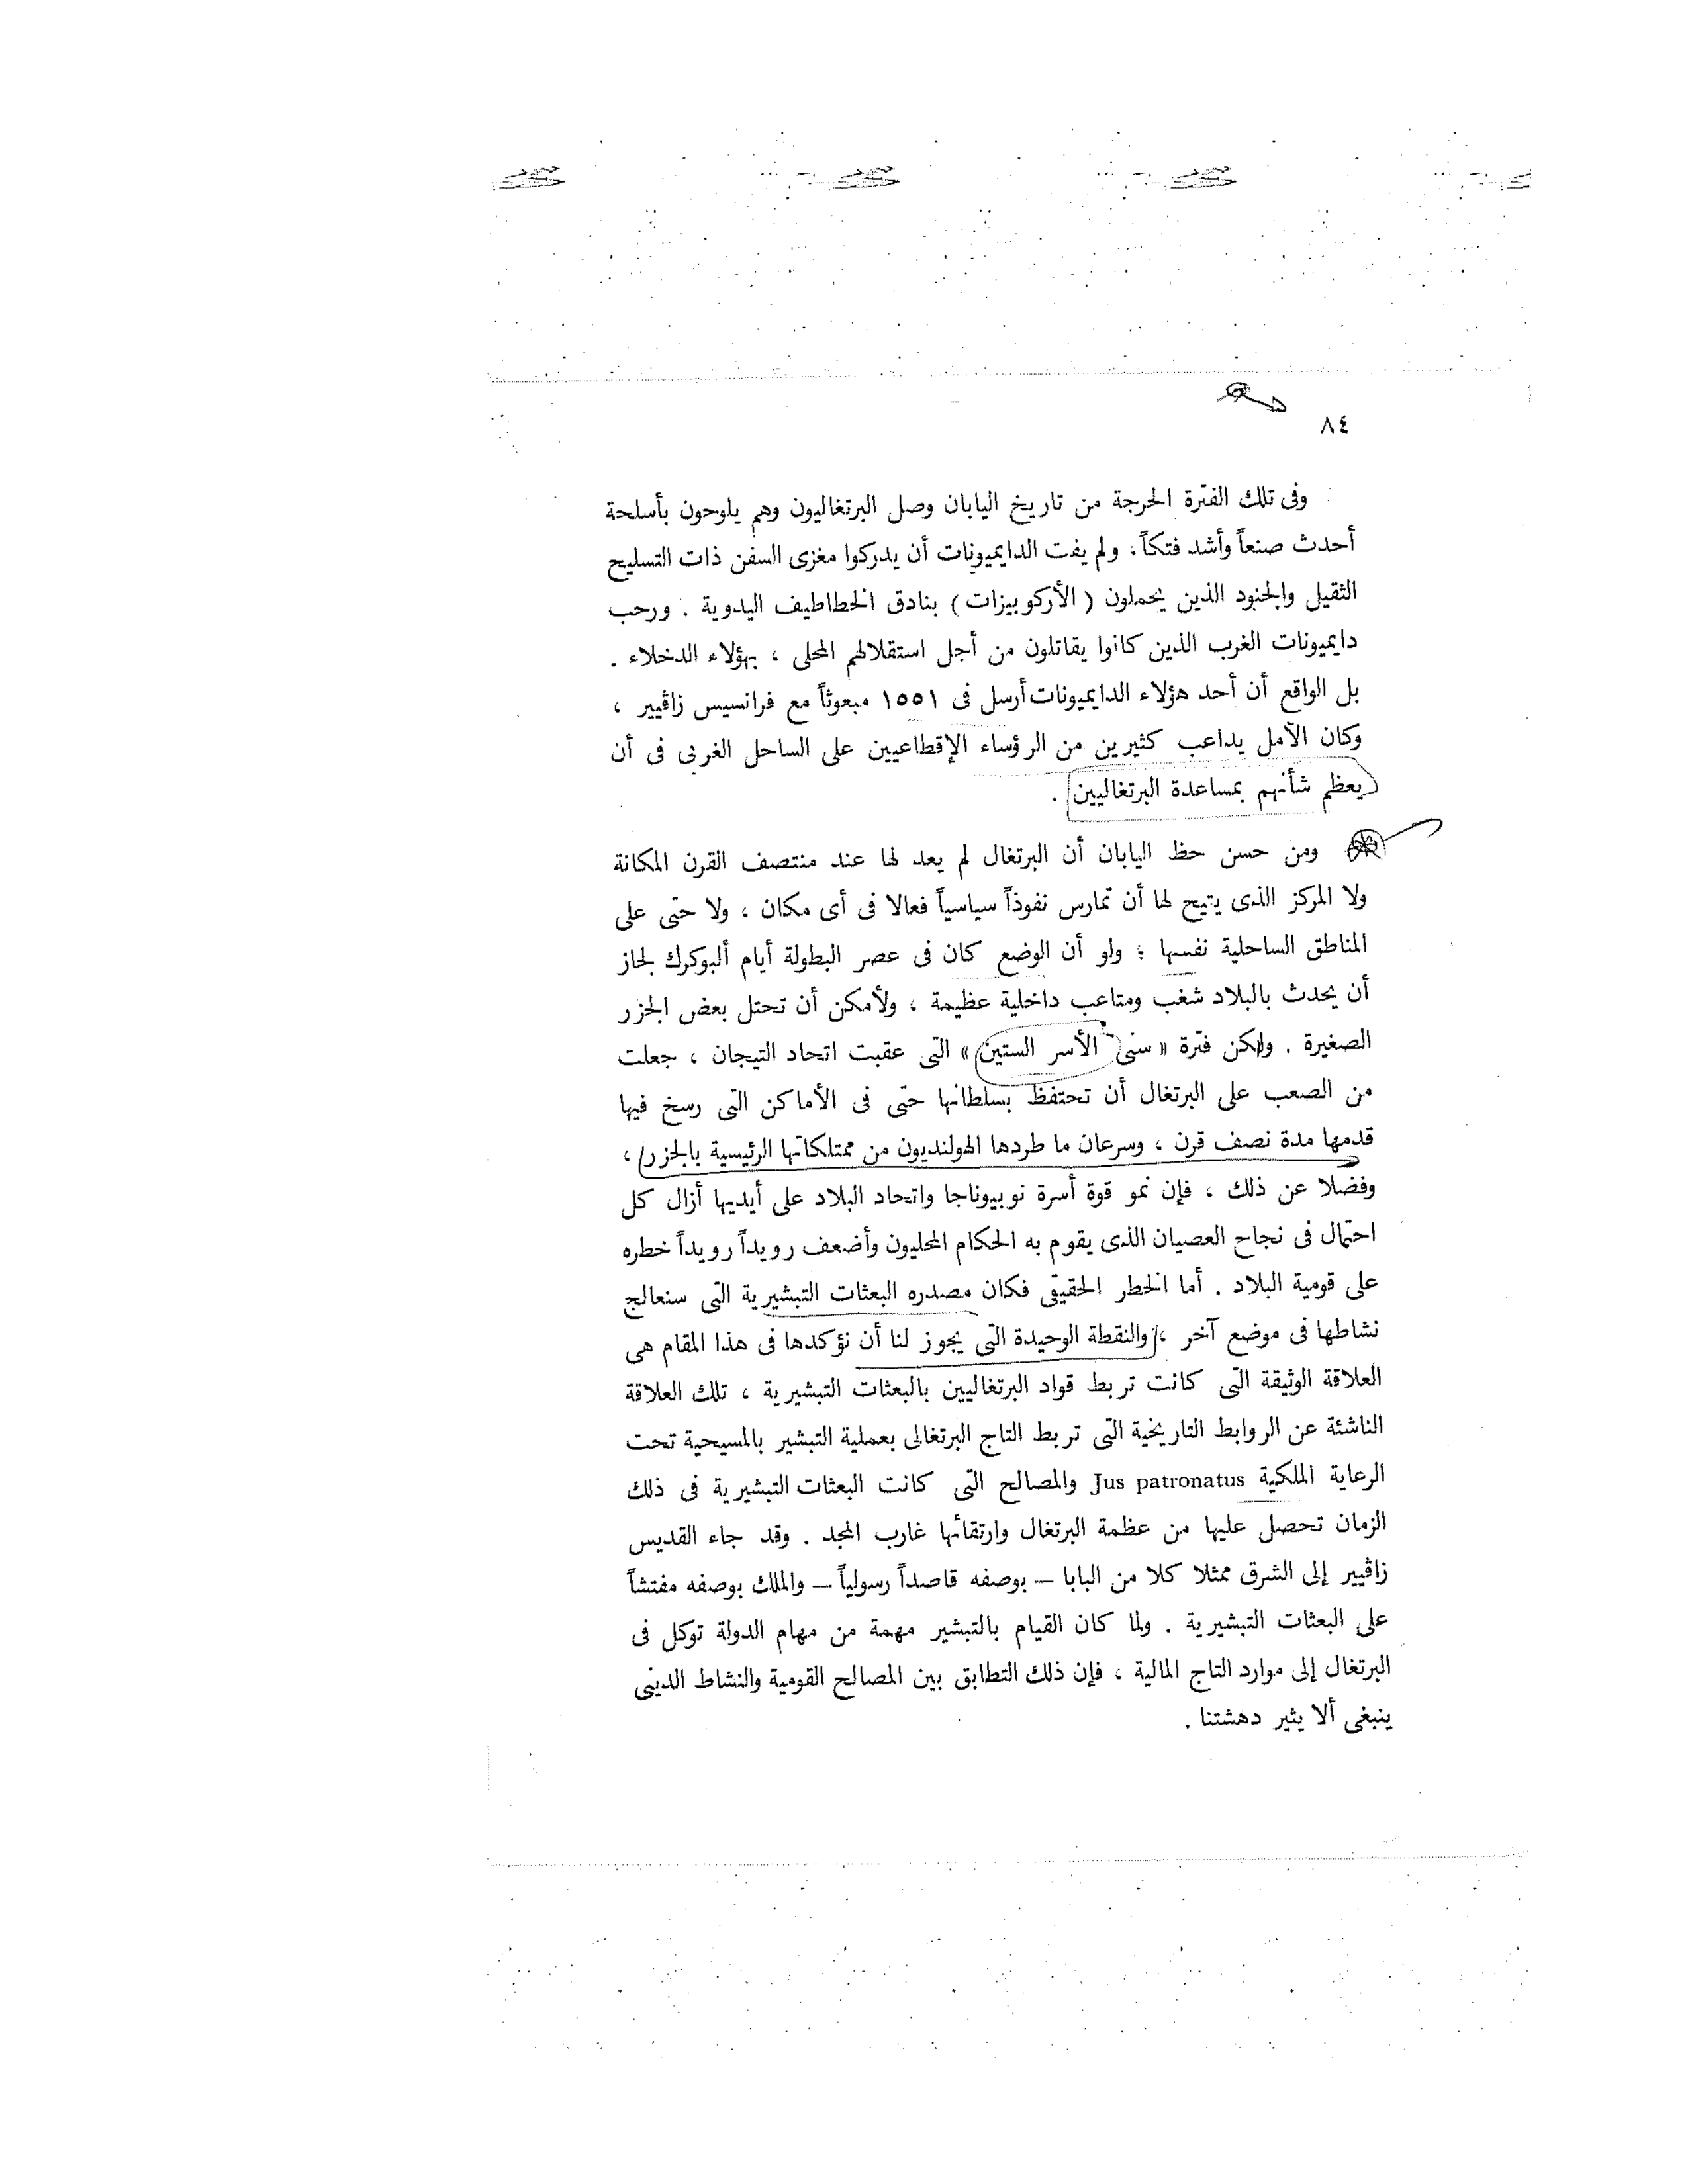 ٨٤
وفى تلك الفترة الحرجة من تاريخ اليابان وصل البرتغاليون وهم يلوحون بأسلحة
أحدث صنعاً وأشد فتكاً، ولم يفت الدايميونات أن يدركوا مغزى السفن ذات التسليح
الثقيل والجنود الذين يحملون ( الأركوبيزات ) بنادق الخطاطيف اليدوية . ورحب
دايميونات الغرب الذين كانوا يقاتلون من أجل استقلالهم المحلى ، بهؤلاء الدخلاء .
بل الواقع أن أحد هؤلاء الدايميونات أرسل فى ١٥٥١ مبعوثاً مع فرانسيس زاڤيير ،
وكان الأمل يداعب كثيرين من الرؤساء الإقطاعيين على الساحل الغربى فى أن
يعظم شأنهم بمساعدة البرتغاليين .
ومن حسن حظ اليابان أن البرتغال لم يعد لها عند منتصف القرن المكانة
ولا المركز الذى يتيح لها أن تمارس نفوذاً سياسياً فعالا فى أى مكان ، ولا حتى على
المناطق الساحلية نفسها ؛ ولو أن الوضع كان فى عصر البطولة أيام ألبوكرك لجاز
أن يحدث بالبلاد شغب ومتاعب داخلية عظيمة ، ولأمكن أن تحتل بعض الجزر
الصغيرة . ولكن فترة « سنى الأسر الستين » التى عقبت اتحاد التيجان ، جعلت
من الصعب على البرتغال أن تحتفظ بسلطانها حتى فى الأماكن التى رسخ فيها
قدمها مدة نصف قرن ، وسرعان ما طردها الهولنديون من ممتلكاتها الرئيسية بالجزر ،
وفضلا عن ذلك ، فإن نمو قوة أسرة نوبيوناجا واتحاد البلاد على أيديها أزال كل
احتمال فى نجاح العصيان الذى يقوم به الحكام المحليون وأضعف رويداً رويداً خطره
على قومية البلاد . أما الخطر الحقيقى فكان مصدره البعثات التبشيرية التى سنعالج
نشاطها فى موضع آخر ، والنقطة الوحيدة التى يجوز لنا أن نؤكدها فى هذا المقام هى
العلاقة الوثيقة التى كانت تربط قواد البرتغاليين بالبعثات التبشيرية ، تلك العلاقة
الناشئة عن الروابط التاريخية التى تربط التاج البرتغالى بعملية التبشير بالمسيحية تحت
الرعاية الملكية Jus patronatus والمصالح التى كانت البعثات التبشيرية فى ذلك
الزمان تحصل عليها من عظمة البرتغال وارتقائها غارب المجد . وقد جاء القديس
زاڤيير إلى الشرق ممثلا كلا من البابا – بوصفه قاصداً رسولياً – والملك بوصفه مفتشاً
على البعثات التبشيرية . ولما كان القيام بالتبشير مهمة من مهام الدولة توكل فى
البرتغال إلى موارد التاج المالية ، فإن ذلك التطابق بين المصالح القومية والنشاط الدينى
ينبغى ألا يثير دهشتنا .